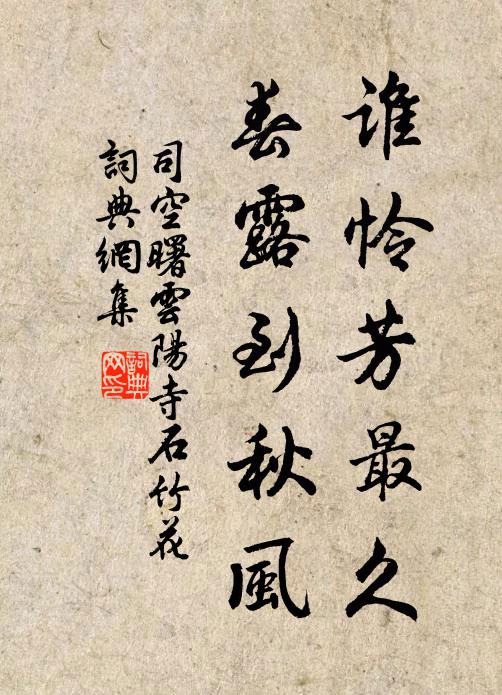 誰怜芳最久
春露到秋風
司空曙雲陽寺石竹花
詞典網集
詞典
网印